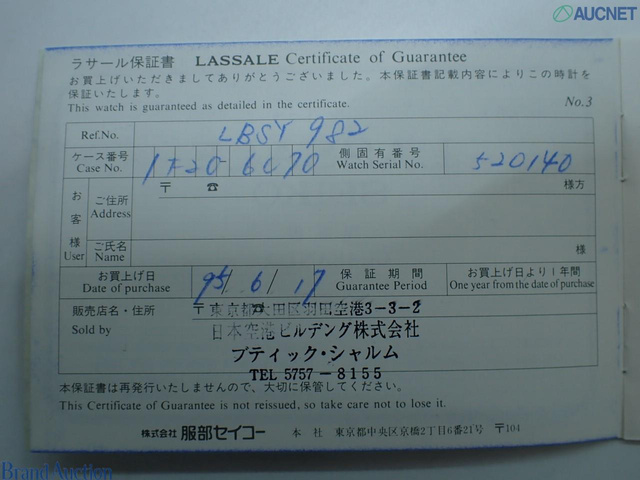 AUCNET
ラサール保証書 LASSALE Certificate of Guarantee
お買上げいただきましてありがとうございました。本保証書記載内容によりこの時計を
保証いたします。
This watch is guaranteed as detailed in the certificate. No.3
Ref.No. LBSY 982
ケース番号 Case No. 1F20-6C70 側固有番号 Watch Serial No. 520140
お客様 User ご住所 Address 〒 ☎ 様方
ご氏名 Name 様
お買上げ日 Date of purchase 95/6/17 保証期間 Guarantee Period お買上げ日より1年間 One year from the date of purchase
販売店名・住所 Sold by 〒東京都大田区羽田空港3-3-2
日本空港ビルデング株式会社
ブティック・シャルム
TEL 5757-8155
本保証書は再発行いたしませんので、大切に保管してください。
This Certificate of Guarantee is not reissued, so take care not to lose it.
株式会社 服部セイコー 本社 東京都中央区京橋2丁目6番21号 〒104
Brand Auction